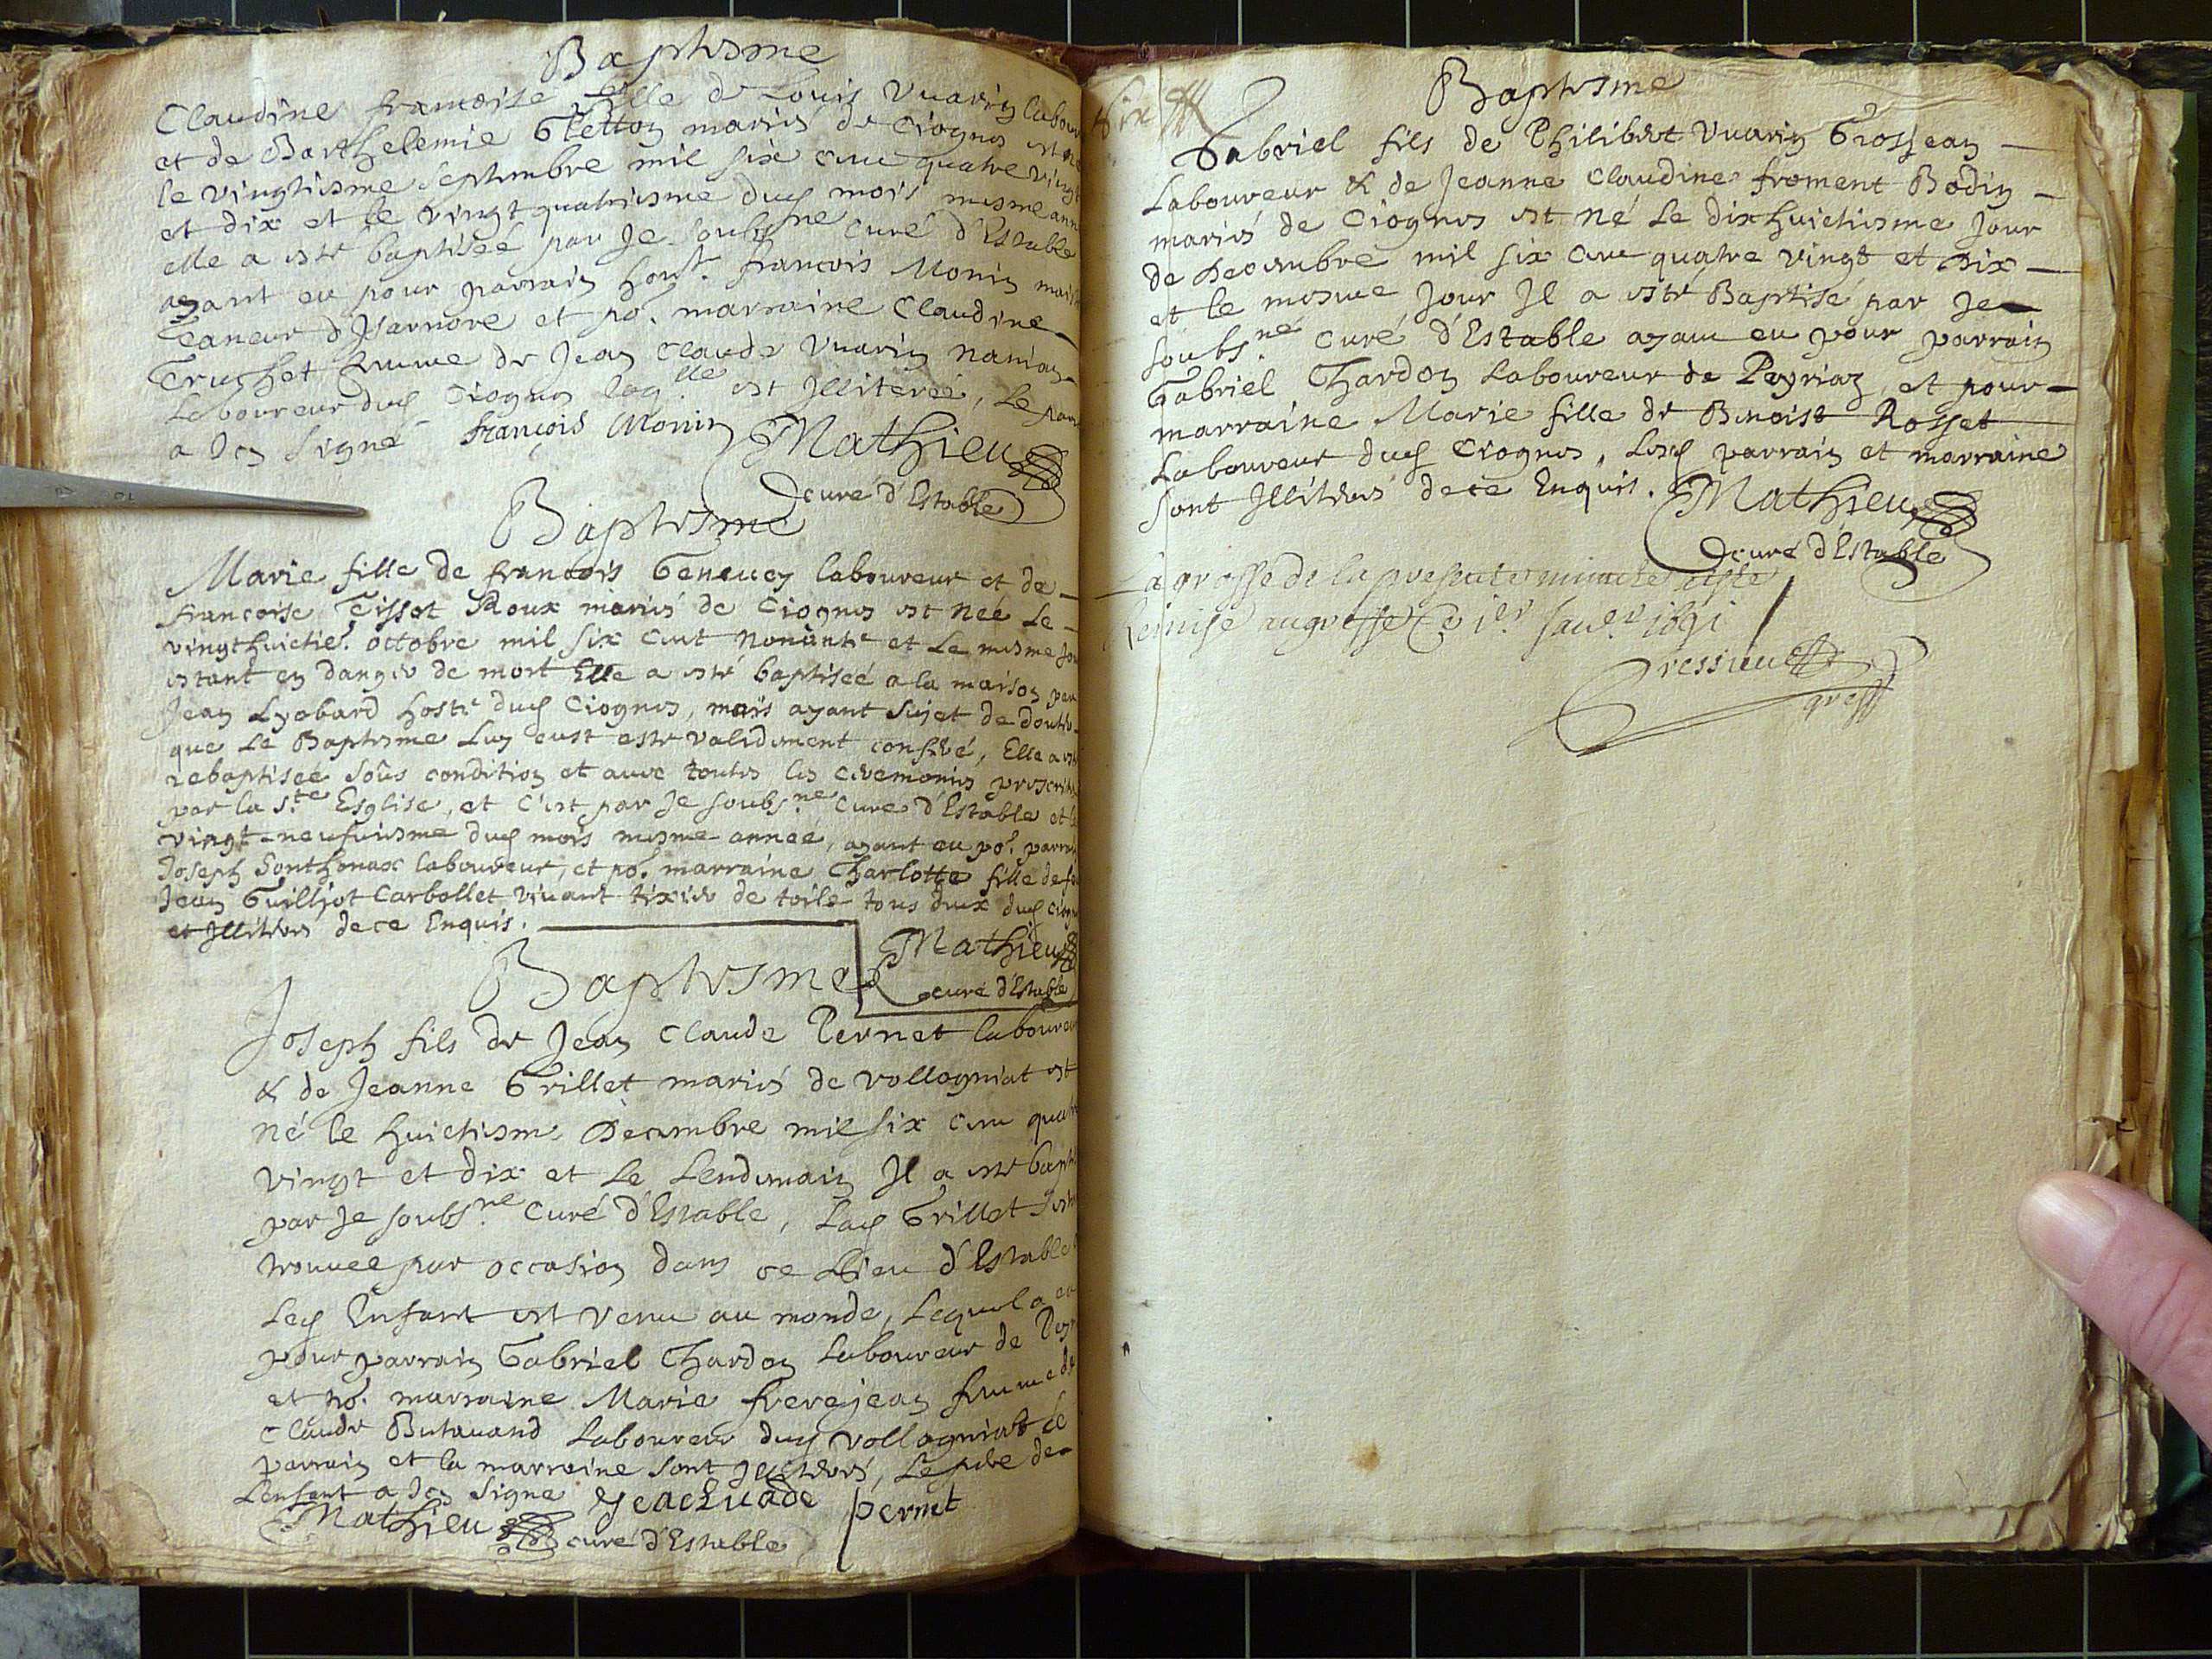 Baptesme
Claudine francoise fille de Louis Vuarin labour
et de Barthelemie Gletton mariés de Ciognes est née
le vingtiesme Septembre mil six cent quatre vingt
et dix et le vingt quatriesme duq mois mesme ann
elle a esté baptiseé par Je soubs.ne curé d'Estable
ayant eu pour parrain hon.t francois Monin mais
Taneur d'Isarnore et po.r marraine Claudine
Truchet femme de Jean Claude Vuarin Nanian
Laboureur duq Ciognes laq.lle est Illitereé, Le par
a Icy Signé françois Monin Mathieu
curé d'Estable
Baptesme
Marie fille de francois Geneuey laboureur et de
francoise Tissot Roux mariés de Ciognes est neé Le
vingthuictie.e octobre mil six cent nonante et Le mesme Jou
estant en danger de mort Elle a esté baptiseé a la maison par
Jean Lyobard hoste duq Ciognes, mais ayant sujet de douter
que Le Baptesme Luy eust esté validement conferé, Elle a est
rebaptiseé soûs condition et avec toutes les ceremonies prescrit
par la s.te Esglise, et C'est par Je soubs.ne Curé d'Estable et le
vingt-neufuiesme duq mois mesme anneé, ayant eu po.r parra
Joseph Sonthonax laboureur, et po.r marraine Charlotte fille de feu
Jean Guilliot Carbollet vivant tixier de toile tous deux duq Ciogn
et Illiteres de ce Enquis.
Mathieu
curé d'Estable
Baptesme
Joseph fils de Jean Claude Pernet laboureu
& de Jeanne Grillet mariés de vollogniat est
né le huictiesme Decembre mil six cent quat
vingt et dix et Le Lendemain Il a esté bapt
par Je soubs.ne Curé d'Estable, Laq Grillet s'est
trouueé par occasion dans ce Lieu d'Estable
Leq Enfant est venu au monde, Lequel a eu
pour parrain Gabriel Chardon Laboureur de Pey
et po.r marraine Marie frerejean femme de
Claude Butauand Laboureur duq vollogniat le
parrain et la marraine sont Illiterés, Le pere de
L'enfant a Icy Signé Pernet
Mathieu curé d'Estable
Six
Baptesme
Gabriel fils de Philibert Vuarin Grosjean
Laboureur & de Jeanne Claudine froment Bodin
mariés de Ciognes est né Le dixhuictiesme Jour
de Decembre mil six cent quatre vingt et Dix
et le mesme Jour Il a esté Baptisé par Je
soubs.né Curé d'Estable ayant eu pour parrain
Gabriel Chardon Laboureur de Peyriaz, et pour
marraine Marie fille de Benoist Rosset
Laboureur duq Ciognes, Lesq parrain et marraine
sont Illiteres de ce Enquis. Mathieu
curé d'Estable
La grosse de la presente minute a esté
Remise au greffe Ce 1.er Jan.er 1691
greff